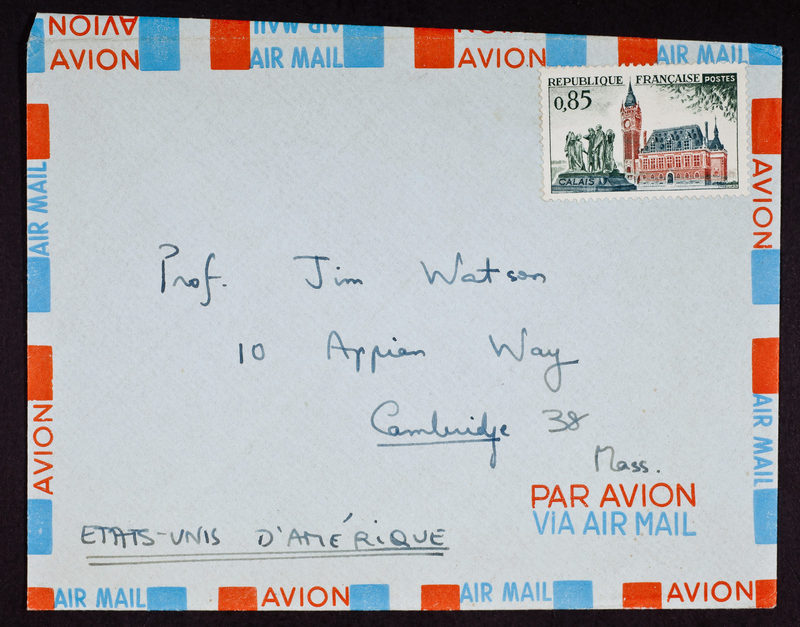 AVION AIR MAIL AVION
AVION AIR MAIL AVION AIR MAIL
REPUBLIQUE FRANÇAISE POSTES
0,85
CALAIS
AIR MAIL
AVION
Prof. Jim Watson
10 Appian Way
Cambridge 38
Mass.
AVION
AIR MAIL
PAR AVION
VIA AIR MAIL
ETATS-UNIS D'AMÉRIQUE
AIR MAIL AVION AIR MAIL AVION